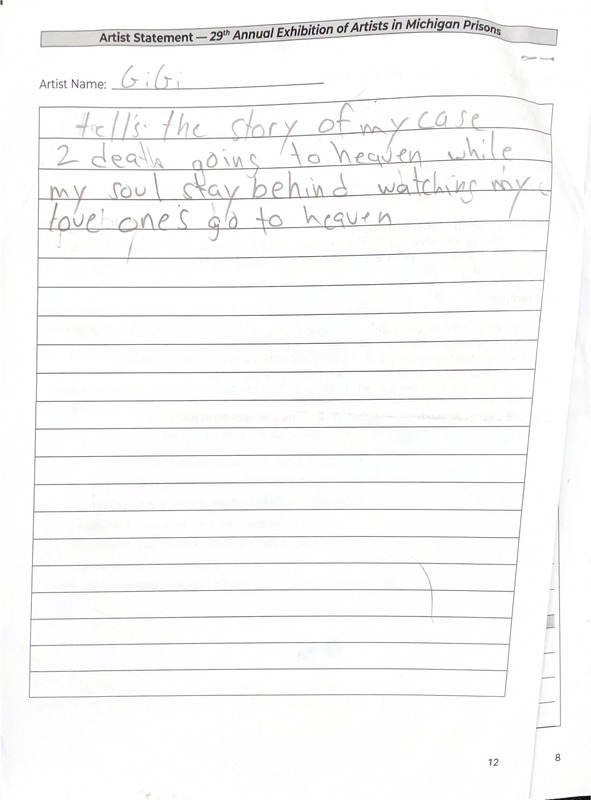 Artist Statement — 29th Annual Exhibition of Artists in Michigan Prisons
Artist Name: GiGi
tell's the story of my case
2 death going to heaven while
my soul stay behind watching my
love one's go to heaven
12
8